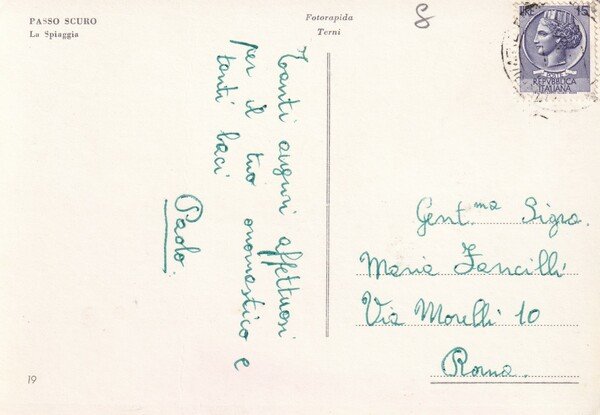 PASSO SCURO
La Spiaggia
Fotorapida
Terni
LIRE 15
REPVBBLICA
ITALIANA
Tanti auguri affettuosi
per il tuo onomastico e
tanti baci
Paolo
Gent.ma Sigra.
Maria Fancilli
Via Morelli 10
Roma.
19